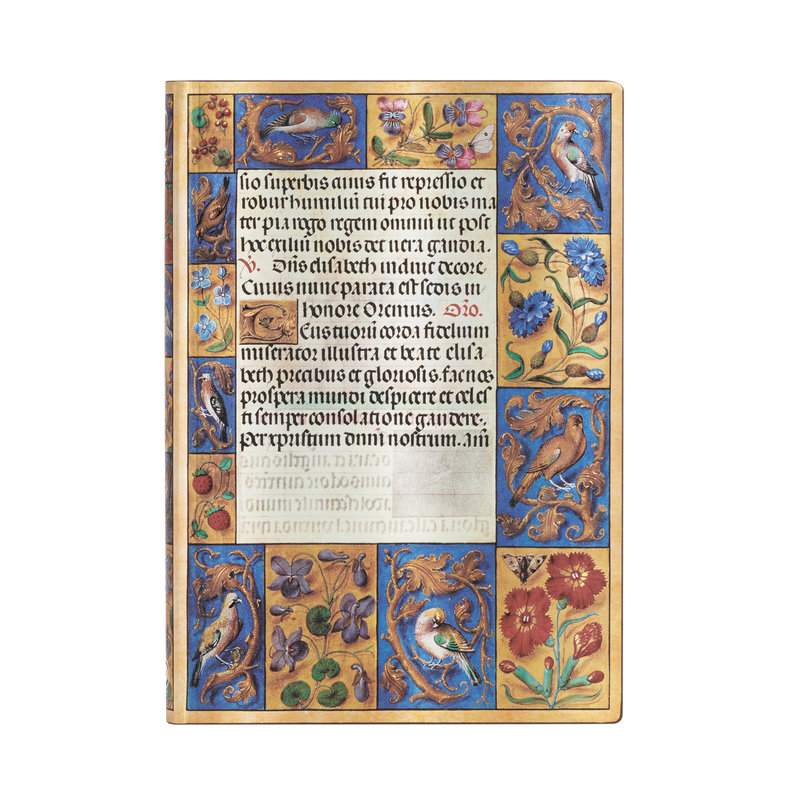 sio superbis cuius fit repressio et
robur humiliū tui pro nobis ma
ter pia rogo regem omniū ut post
hoc exiliū nobis det uera gaudia.
℣. Diis elisabeth induit decore
Cuius nunc parata est sedis in
honore Oremus. Oro.
Eus tuorū corda fidelium
miserator illustra et beate elisa
beth precibus et gloriosis fac nos
prospera mundi despicere et celes
ti semper consolatione gaudere.
Per xpristum dnm nostrum. am̄